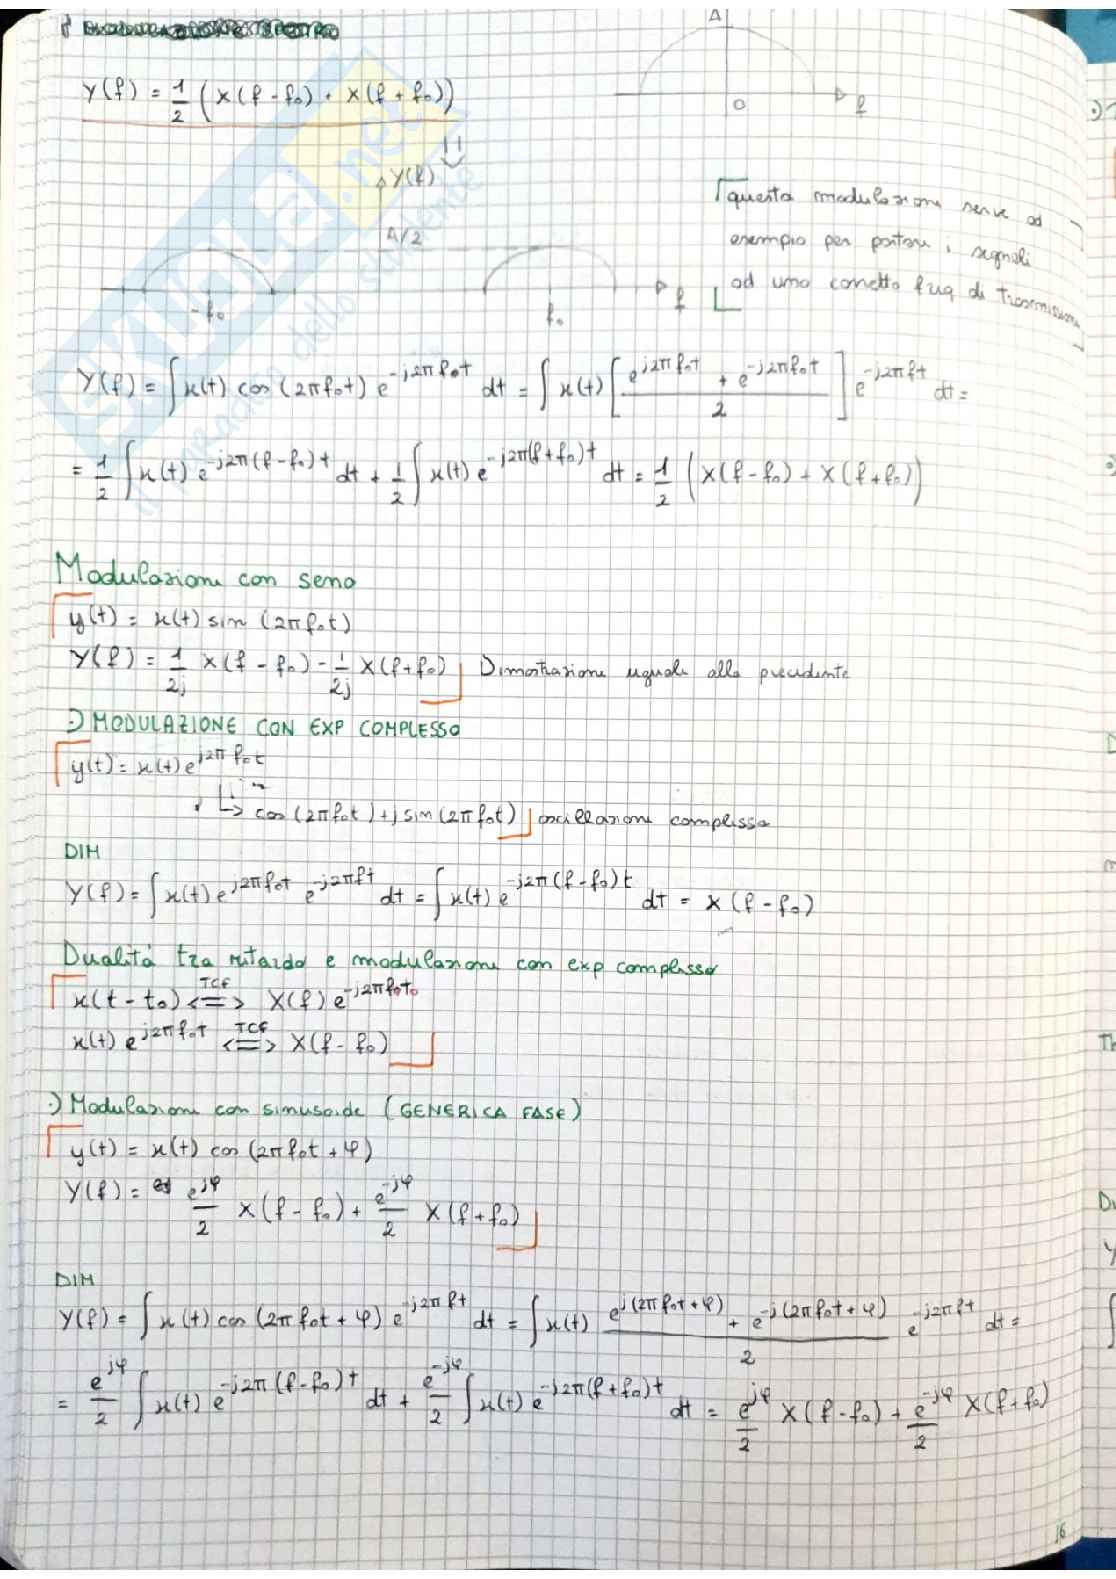 A
Y(f) = 1/2 (X(f - f₀) + X(f + f₀))
0 f
Y(f)
A/2
-f₀ f₀ f
questa modulazione serve ad
esempio per portare i segnali
ad una corretta freq di trasmissione
Y(f) = ∫ x(t) cos (2π f₀t) e^{-j2π f₀t} dt = ∫ x(t) [ (e^{j2π f₀t} + e^{-j2π f₀t}) / 2 ] e^{-j2π ft} dt =
= 1/2 ∫ x(t) e^{-j2π (f - f₀) t} dt + 1/2 ∫ x(t) e^{-j2π(f + f₀) t} dt = 1/2 (X(f - f₀) + X(f + f₀))
Modulazione con seno
y(t) = x(t) sin (2π f₀t)
Y(f) = 1/2j X(f - f₀) - 1/2j X(f + f₀) Dimostrazione uguale alla precedente
·) MODULAZIONE CON EXP COMPLESSO
y(t) = x(t) e^{j2π f₀t}
↳ cos (2π f₀t) + j sin (2π f₀t) oscillazione complessa
DIM
Y(f) = ∫ x(t) e^{j2π f₀t} e^{-j2π ft} dt = ∫ x(t) e^{-j2π (f - f₀) t} dt = X (f - f₀)
Dualità tra ritardo e modulazione con exp complesso
x(t - t₀) <=TCF=> X(f) e^{-j2π f₀t₀}
x(t) e^{j2π f₀t} <=TCF=> X(f - f₀)
·) Modulazione con sinusoide (GENERICA FASE)
y(t) = x(t) cos (2π f₀t + φ)
Y(f) = e^{jφ}/2 X(f - f₀) + e^{-jφ}/2 X(f + f₀)
DIM
Y(f) = ∫ x(t) cos (2π f₀t + φ) e^{-j2π ft} dt = ∫ x(t) (e^{j(2π f₀t + φ)} + e^{-j(2π f₀t + φ)}) / 2 e^{-j2π ft} dt =
= e^{jφ}/2 ∫ x(t) e^{-j2π (f - f₀) t} dt + e^{-jφ}/2 ∫ x(t) e^{-j2π(f + f₀) t} dt = e^{jφ}/2 X(f - f₀) + e^{-jφ}/2 X(f + f₀)
16
SKUOLA.net
il paradiso dello studente